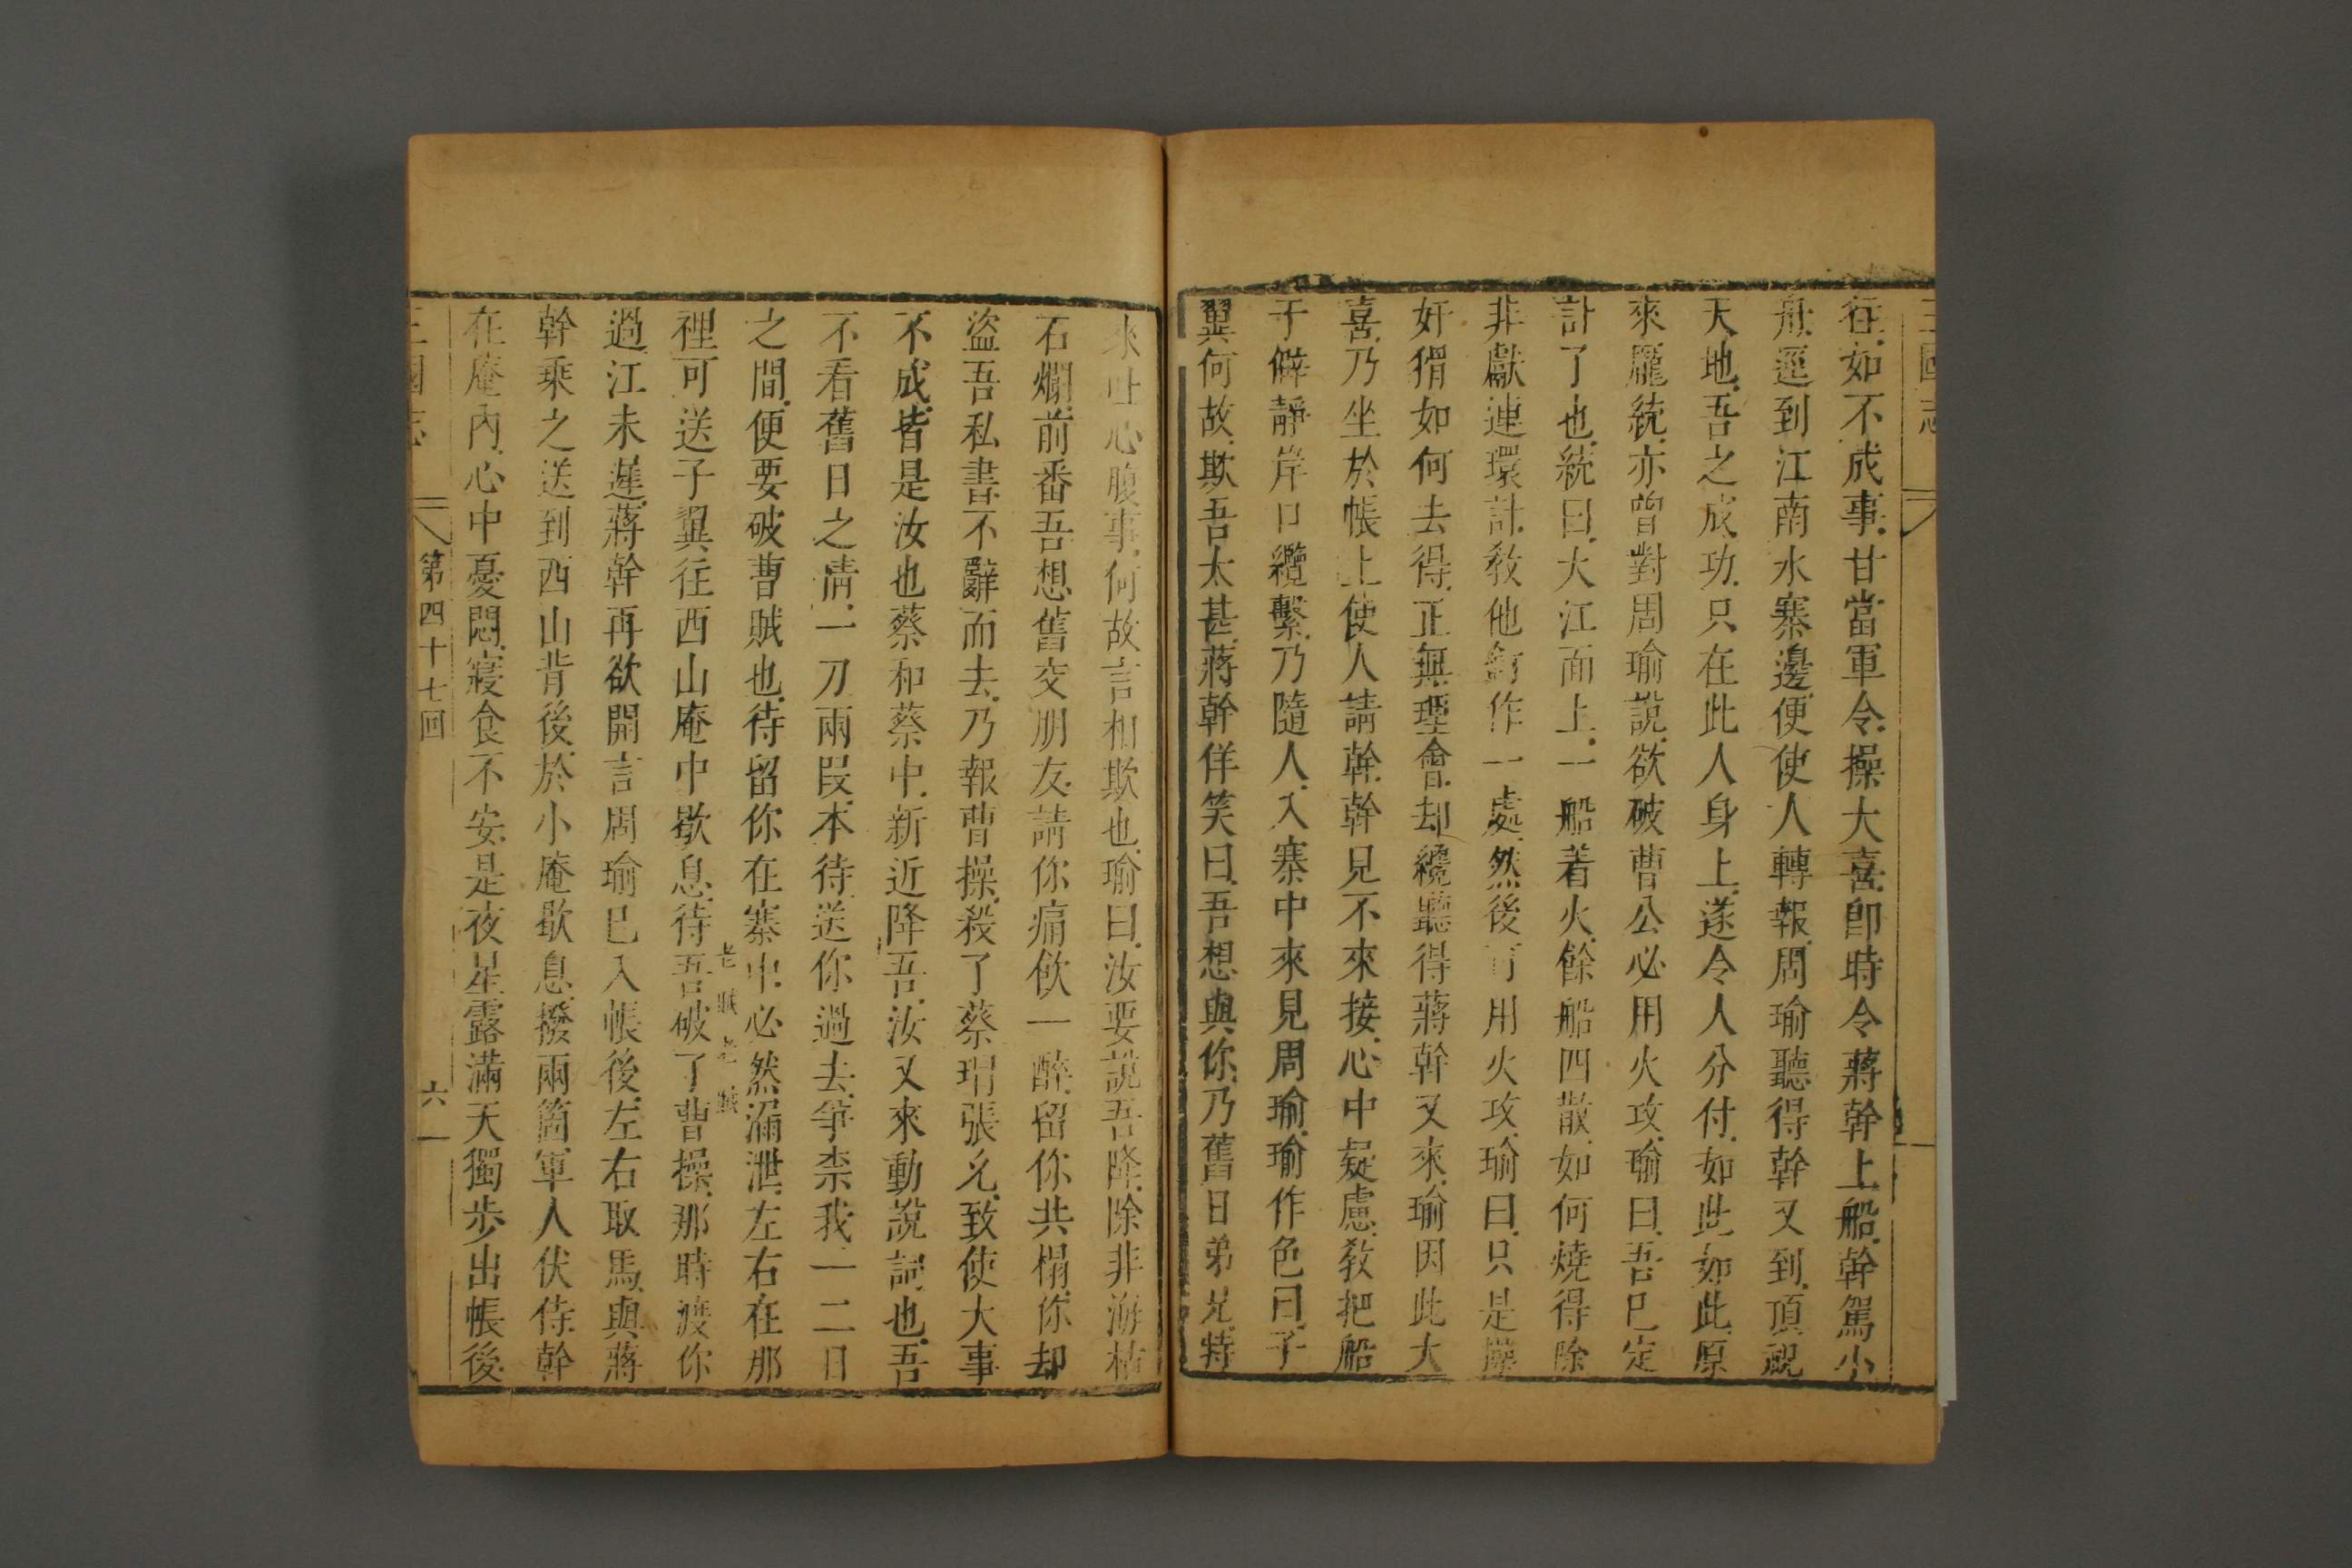 三國志
往如不成事甘當軍令操大喜卽時令蔣幹上船幹駕小
舟逕到江南水寨邊便使人轉報周瑜聽得幹又到頂覷
天地吾之成功只在此人身上遂令人分付如此如此原
來龐統亦曾對周瑜說欲破曹公必用火攻瑜曰吾已定
計了也統曰大江面上一船着火餘船四散如何燒得除
非獻連環計教他釘作一處然後可用火攻瑜曰只是操
奸猾如何去得正無理會却纔聽得蔣幹又來瑜因此大
喜乃坐於帳上使人請幹幹見不來接心中疑慮教把船
于僻靜岸口纜繫乃隨人入寨中來見周瑜瑜作色曰子
翼何故欺吾太甚蔣幹佯笑曰吾想與你乃舊日弟兄特
來吐心腹事何故言相欺也瑜曰汝要說吾降除非海枯
石爛前番吾想舊交朋友請你痛飲一醉留你共榻你却
盜吾私書不辭而去乃報曹操殺了蔡瑁張允致使大事
不成皆是汝也蔡和蔡中新近降吾汝又來動說詞也吾
不看舊日之情一刀兩段本待送你過去爭柰我一二日
之間便要破曹賊也待留你在寨中必然漏泄左右在那
老賊老賊
裡可送子翼往西山庵中歇息待吾破了曹操那時渡你
過江未遲蔣幹再欲開言周瑜已入帳後左右取馬與蔣
幹乘之送到西山背後於小庵歇息撥兩箇軍人伏侍幹
在庵內心中憂悶寢食不安是夜星露滿天獨步出帳後
三國志 第四十七回 六